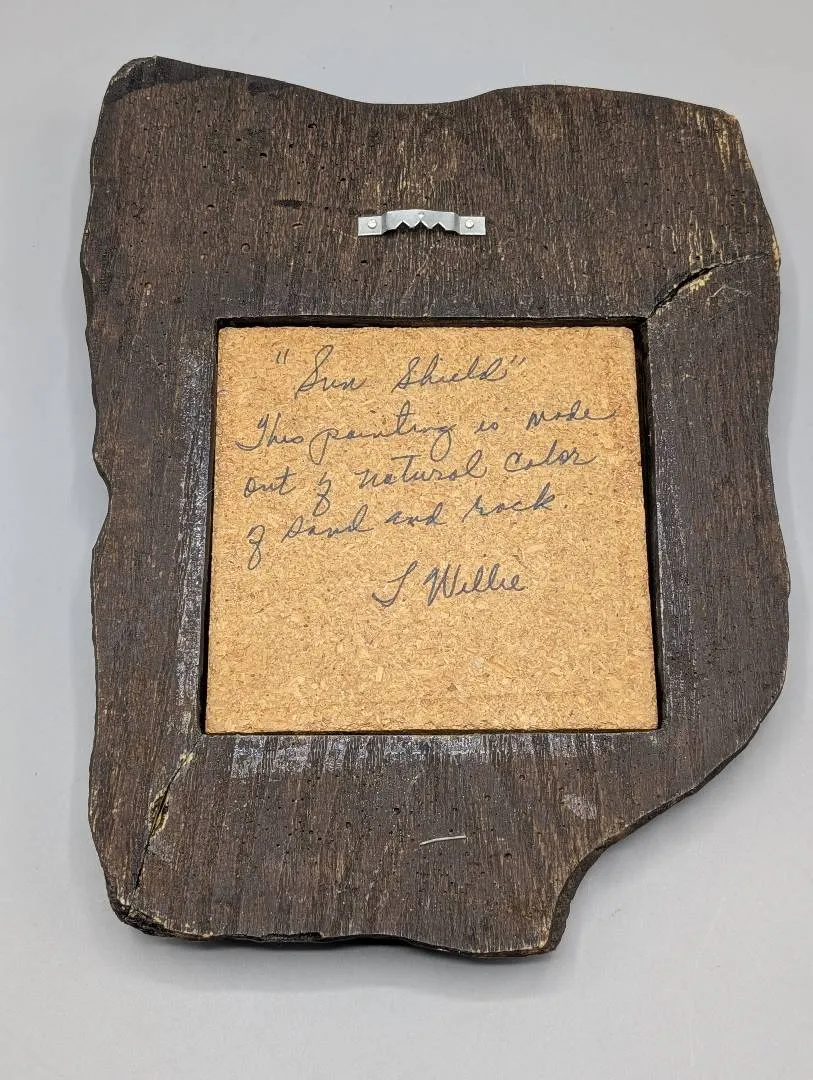 "Sun Shield"
This painting is made
out of natural color
of sand and rock.
L Willie